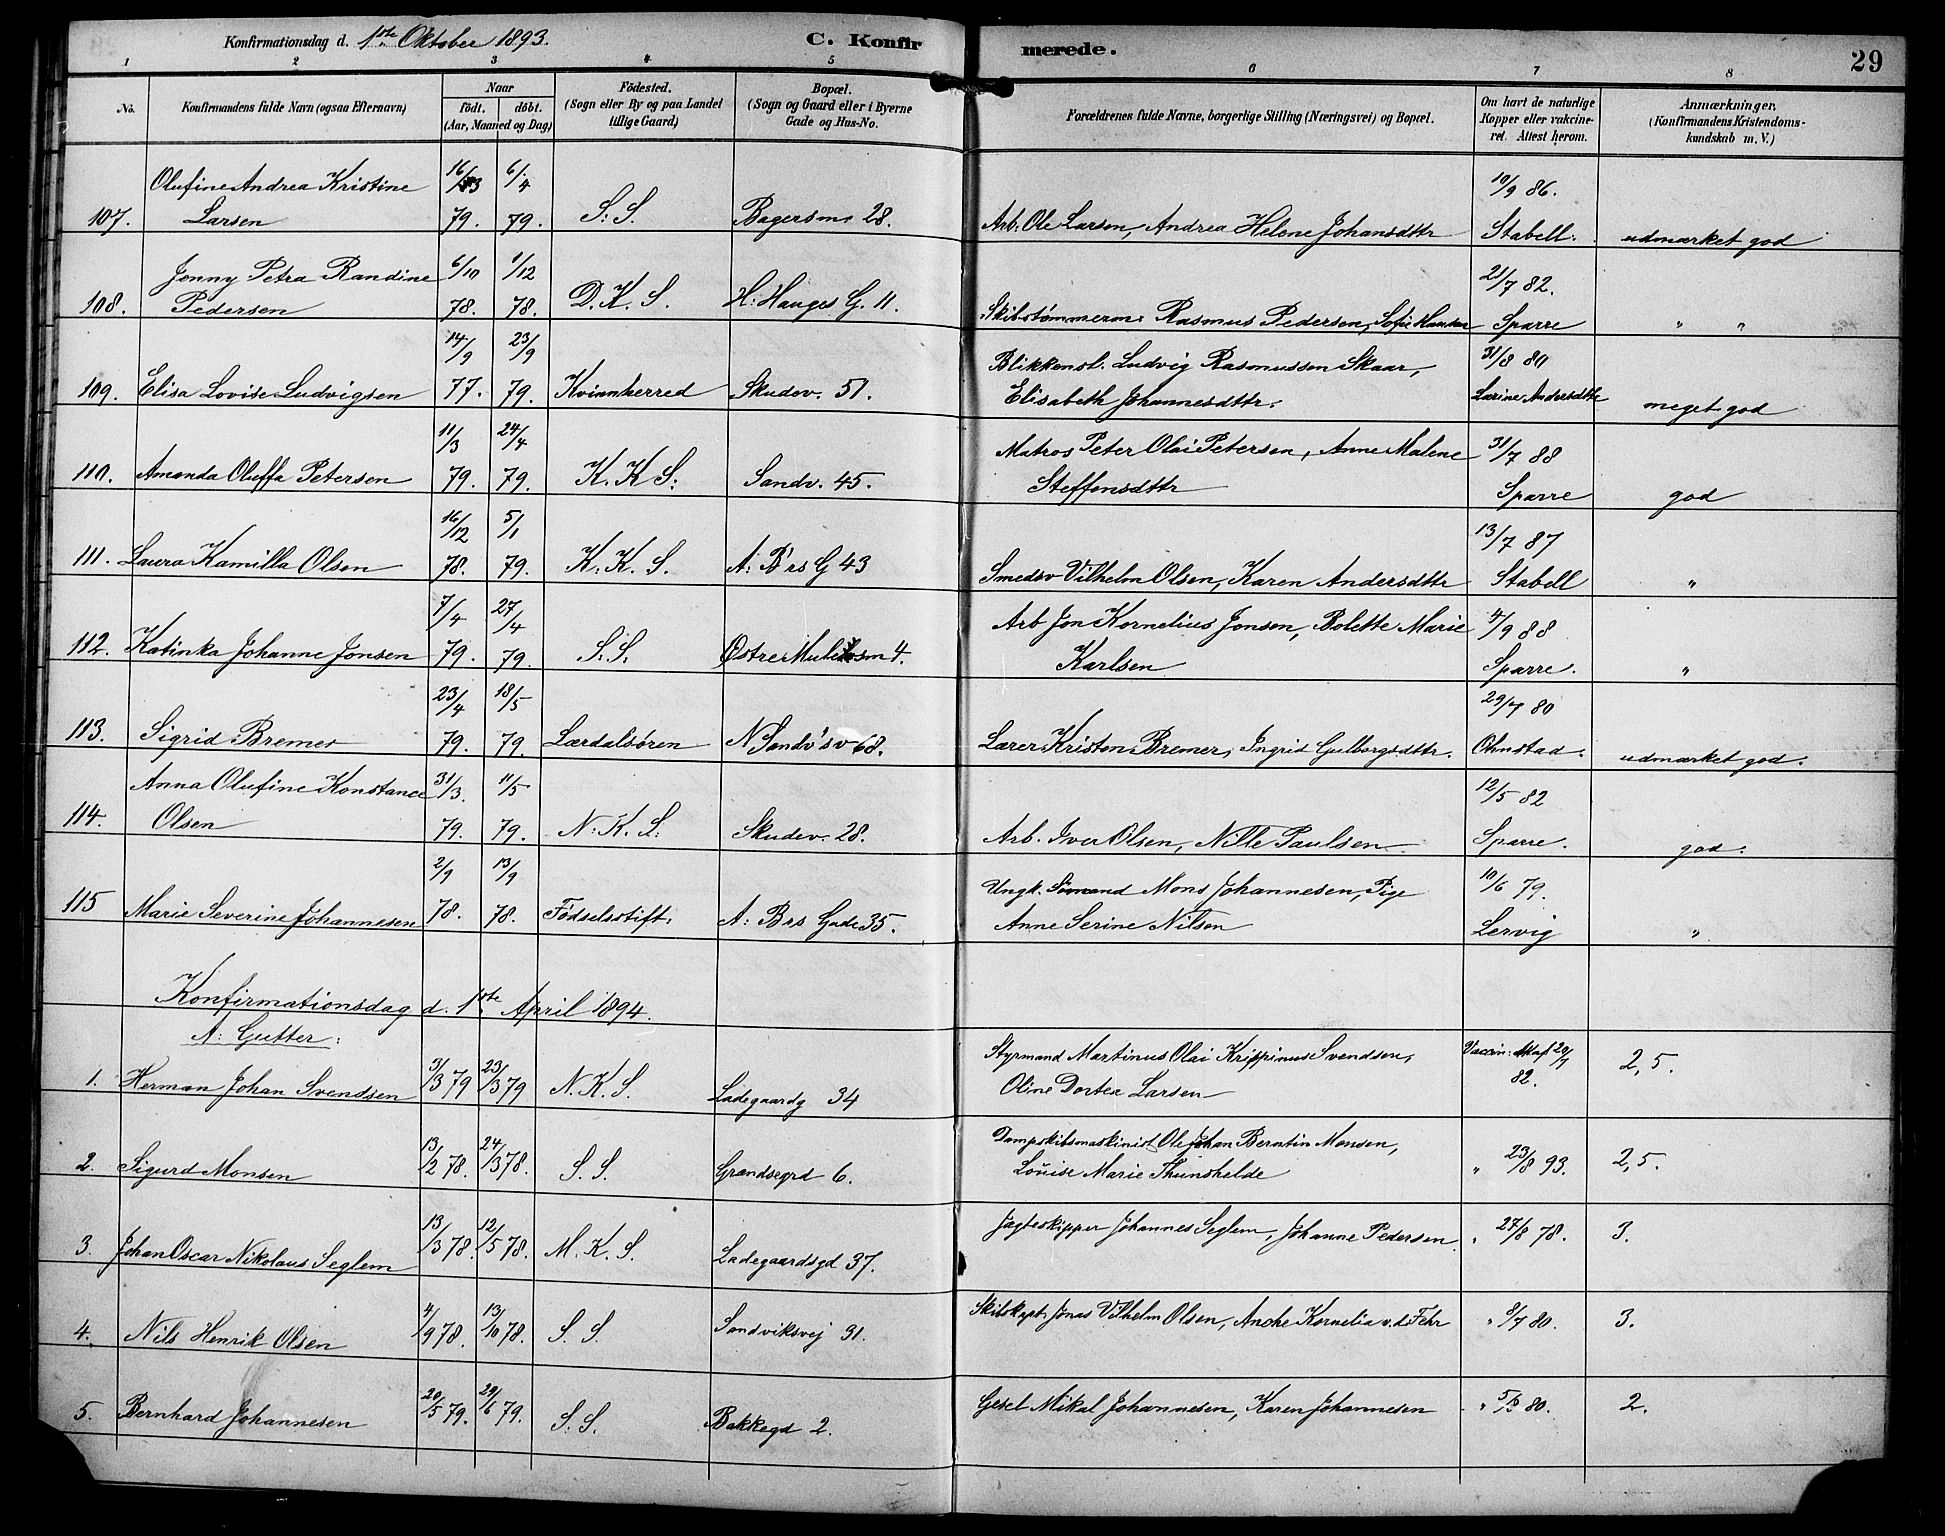 Konfirmationsdag d. 1ste Oktober 1893. C. Konfirmerede. 29
1 2 3 4 5 6 7 8
No. Konfirmandens fulde Navn (ogsaa Efternavn) Naar födt. döbt. (Aar, Maaned og Dag) Födested. (Sogn eller By og paa Landet tillige Gaard) Bopæl. (Sogn og Gaard eller i Byerne Gade og Hus-No. Forældrenes fulde Navne, borgerlige Stilling (Næringsvei) og Bopæl. Om havt de naturlige Kopper eller vakcineret. Attest herom. Anmærkninger. (Konfirmandens Kristendomskundskab m. V.)
107. Olufine Andrea Kristine Larsen 16/3 79. 6/4 79. S. S. Bagersm. 28. Arb. Ole Larsen, Andrea Helene Johansdttr 10/9 86. Stabell. udmærket god
108. Jenny Petra Randine Pedersen 6/10 78. 1/12 78. D. K. S. H. Hauges G. 11. Skibstømmerm. Rasmus Pedersen, Sofie Hansen 21/7 82. Sparre " "
109. Elisa Lovise Ludvigsen 14/9 77. 23/9 79. Kvinnherred Skudev. 51. Blikkensl. Ludvig Rasmussen Skaar, Elisabeth Johannesdttr. 31/8 80 Lærine Andersdttr meget god
110. Amanda Oluffa Petersen 11/3 79. 24/4 79. K. K. S. Sandv. 45. Matros Peter Olai Petersen, Anne Malene Steffensdttr 31/7 88 Sparre god
111. Laura Kamilla Olsen 16/12 78. 5/1 79. K. K. S. A: B's G 43 Smedsv Vilhelm Olsen, Karen Andersdttr 13/7 87 Stabell "
112. Katinka Johanne Jonsen 7/4 79. 27/4 79. S. S. Østre Mulesm 4. Arb Jon Kornelius Jonsen, Bolette Marie Karlsen 4/9 88 Sparre. "
113. Sigrid Bremer 23/4 79. 18/5 79. Lærdalsören N Sandv's v 68. Lærer Kristen Bremer, Ingrid Gulborgsdttr. 29/7 80 Ohnstad. udmærket god.
114. Anna Olufine Konstance Olsen 31/3. 79. 11/5 79. N. K. S. Skudev. 28. Arb. Iver Olsen, Nille Paulsen 12/5 82 Sparre. god.
115 Marie Severine Johannesen 2/9 78. 13/9 78. Fødselsstift. A: Brs Gade 35. Ungk. Sømand Mons Johannesen, Pige Anne Serine Nilsen 10/6 79. Lervig "
Konfirmationsdag d. 1ste April 1894.
A: Gutter:
1. Herman Johan Svendsen 3/3 79 23/3 79 N. K. S. Ladegaardg 34 Styrmand Martinus Olai Krippinus Svendsen, Oline Dortea Larsen Vaccin: 20/7 82. 2,5.
2. Sigurd Monsen 13/2 78. 24/3 78. S. S. Grændsegrd 6. Dampskibsmaskinist Ole Johan Berntin Monsen, Louise Marie Thunshelde " 23/8 93. 2,5.
3. Johan Oscar Nikolaus Seglem 13/3 78. 12/5 78. M. K. S. Ladegaardsgd 37. Jagteskipper Johannes Seglem, Johanne Pedersen " 27/8 78. 3.
4. Nils Henrik Olsen 4/9 78. 13/10 78. S. S. Sandviksvej 91. Skibskapt. Jonas Vilhelm Olsen, Anche Kornelia v. d. Fehr " 9/7 80. 3.
5. Bernhard Johannesen 20/5 79. 29/6 79. S. S. Bakkegd 2. Gesel Mikal Johannesen, Karen Johannesen " 5/8 80. 2.